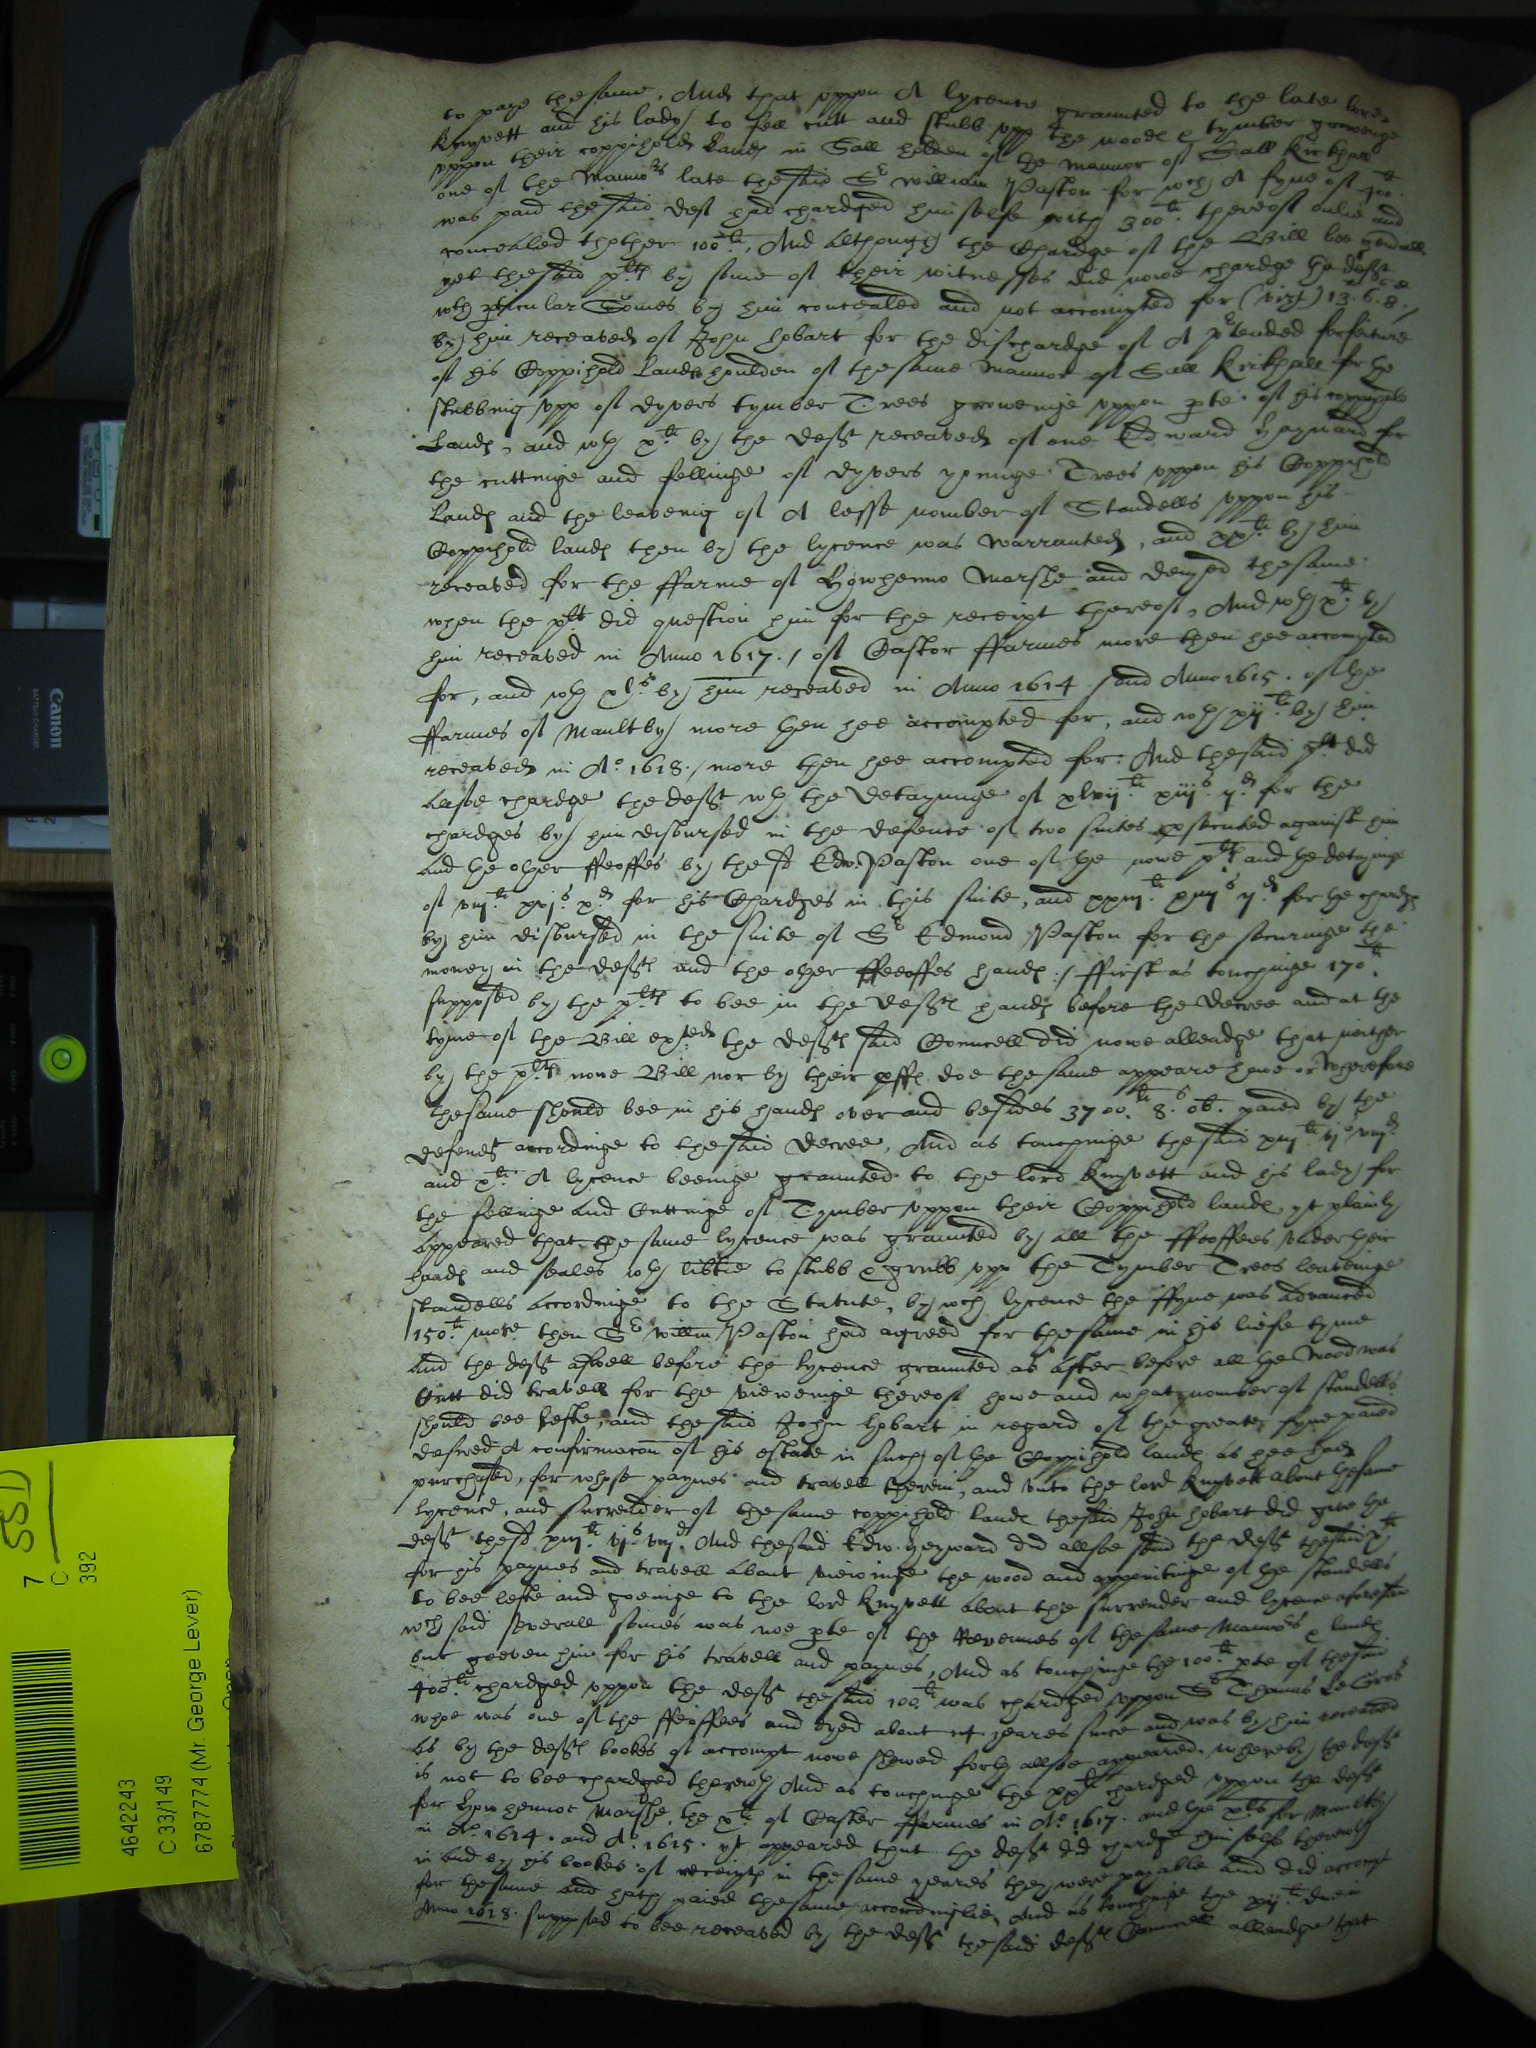 to paye thesame, And that uppon A lycence graunted to the late lord
Knyvett and his lady to fell cutt and stubb upp the woode & tymber growenge
uppon their coppiehold Lands in Sall holden of the Mannor of Sall Kirkhall
one of the Manno:rs late thesaid S:r William Paston for w:ch A fyne of 400:li
was paid thesaid def had chardged himselfe with 300:li thereof onlie and
concealed thother 100:li, And Althoughe the Chardge of the Bill bee generall
yet thesaid pl:ts by some of their witnesses did nowe chardge the deff:t
w:th p:ticular Somes by him concealed and not accompted for (vizt) 13. 6. 8./
by him receaved of John Hobart for the dischardge of A p:rtended forfeiture
of his Coppihold Lands houlden of thesame Mannor of Sall Kirkhall for the
stubbing upp of dyvers tymber Trees growenge uppon p:te of his coppihold
Lands, and w:th x:li by the deff:t receaved of one Edward Hayward for
the cuttinge and fellinge of dyvers younge Trees uppon his Coppihold
Lands and the leaveing of A lesse nomber of Standells uppon his
Coppihold lands then by the lycence was warranted, and xx:li by him
receaved for the ffarme of Marshe and denyed thesame
when the pl:t did question him for the receipt thereof, And w:th x:li by
him receaved in Anno 1617./ of Castor ffarmes more then hee accompted
for, and w:th xl:s by him receaved in Anno 1614 / and Anno 1615. of the
ffarmes of Maultby more then hee accompted for, and w:th xij:li by him
receaved in A:o 1618./ more then hee accompted for: And thesaid pl:t did
Allsoe chardge the deff:t w:th the detayninge of xlvij:li xiij:s ij:d for the
chardges by him disbursed in the defence of two suites prosecuted against him
And the other ffeoffes by the sd Edw. Paston one of the nowe pl:ts and the detayninge
of viij:li xvj:s x:d for his Chardges in this suite, and xxiij:li xiij:s ij:d for the chardges
by him disbursed in the suite of S:r Edmond Paston for the secureinge the
money in the deff:ts and the other ffeoffes hands:/ ffirst as touchinge 170:li
supposed by the pl:ts to bee in the deff:ts hands before the decree and at the
tyme of the Bill exhited the deff:ts said Councell did nowe alleadge that neither
by the pl:ts nowe Bill nor by their pffs doe thesame appeare howe or wherefore
thesame should bee in his hands over and besides 3700:li 8:s ob. paied by the
defend:t accordinge to thesaid decree, And as touchinge thesaid xiij:li vj:s viij:d
and x:li A lycence beeinge graunted to the lord Knyvett and his lady for
the fellinge and Cuttinge of Tymber uppon their Coppihold lands yt plainly
Appeared that thesame lycence was graunted by all the ffeoffees under their
hands and seales w:th lib:tie to stubb & grubb upp the Tymber Trees leaveinge
standells Accordinge to the Statute, by w:ch lycence the ffyne was advanced
150:li more then S:r Willm Paston had agreed for thesame in his liefe tyme
And the deff:t aswell before the lycence graunted as After before all the Wood was
Cutt did travell for the vieweinge thereof howe and what nomber of standells
should bee lefte, and thesaid John Hobart in regard of the greate fyne paied
desired A confirmacon of his estate in such of the Coppihold lands as hee had
purchased, for whose paynes and travell therein, and unto the lord Knyvett about thesame
lycence, and surrender of thesame coppihold lands thesaid John Hobart did give the
deff:t thesd xiij:li vj:s viij:d. And thesaid Edw. Heyward did allsoe send the deff:t thesaid x:li
for his paynes and travell about vieweinge the wood and appointinge of the standells
to bee lefte and goeinge to the lord Knyvett about the surrender and lycence aforesaid
w:ch said severall somes was noe p:te of the Revenues of thesame Mannors & lands
but geeven him for his travell and paynes, And as touchinge the 100:li p:te of thesaid
400:li chardged uppon the deff:t thesaid 100:li was chardged uppon S:r Thomas Le Gros
whoe was one of the ffeoffees and dyed about yeares since and was by him receaved
As by the deff:ts bookes of accompt nowe shewed forth allsoe appeared, whereby the deff:t
is not to bee chardged therew:th And as touchinge the xx:li chardged uppon the deff:t
for Marshe, the x:li of Caster ffarmes in A:o 1617. and the xl:s for Maultby
in A:o 1614. and A:o 1615. yt appeared that the deff:t did chardge himselfe therew:th
in and by his bookes of receipts in thesame yeares they were payable and did accompt
for thesame and hath paied thesame accordinglie, And as touchinge the xij:li due in
Anno 1618. supposed to bee receaved by the deff:t thesaid deff:ts Councell alleadge that
SSD
7
C
392
4642243
C 33/149
6787774 (Mr. George Lever)
Canon
BATTERY CHARGER